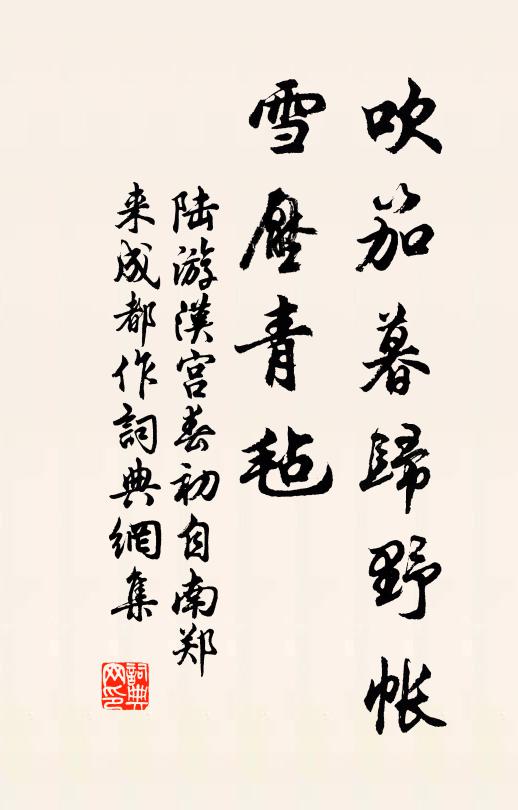 吹笳暮歸野帳
雪壓青毡
陆游漢宫春初自南郑
来成都作詞典網集
詞典网印